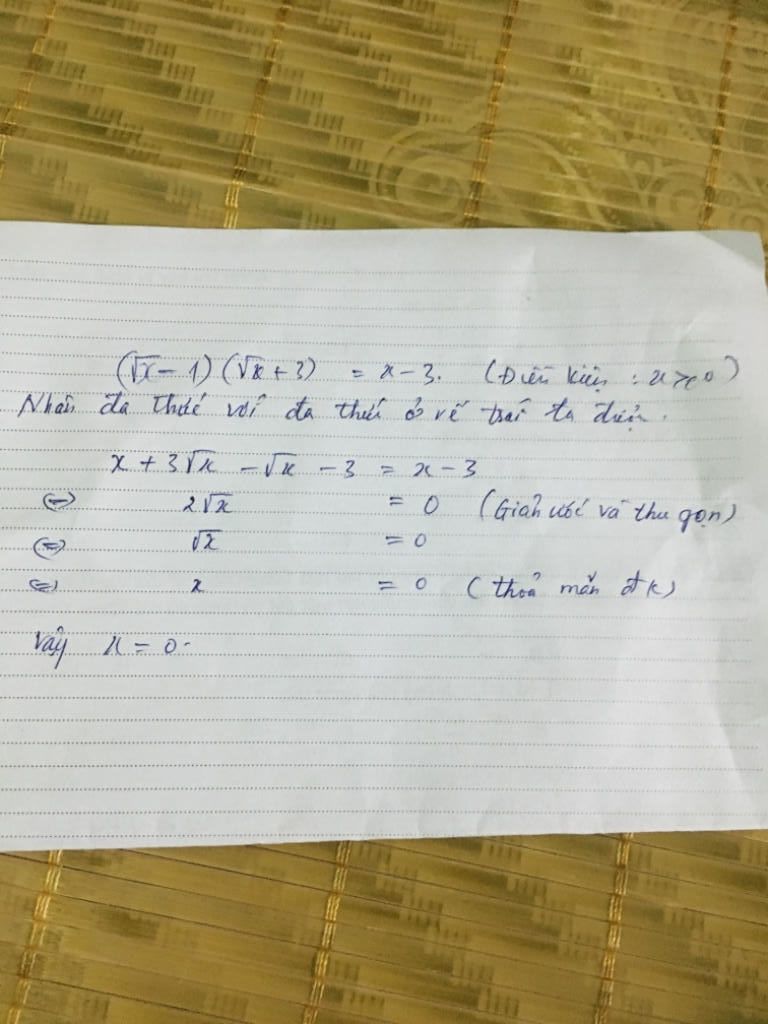 (√x - 1)(√x + 3) = x - 3. (Điều kiện : x ≥ 0)
Nhân đa thức với đa thức ở vế trái ta được.
x + 3√x - √x - 3 = x - 3
⇔ 2√x = 0 (Giản ước và thu gọn)
⇔ √x = 0
⇔ x = 0 (thoả mãn đk)
Vậy x = 0.